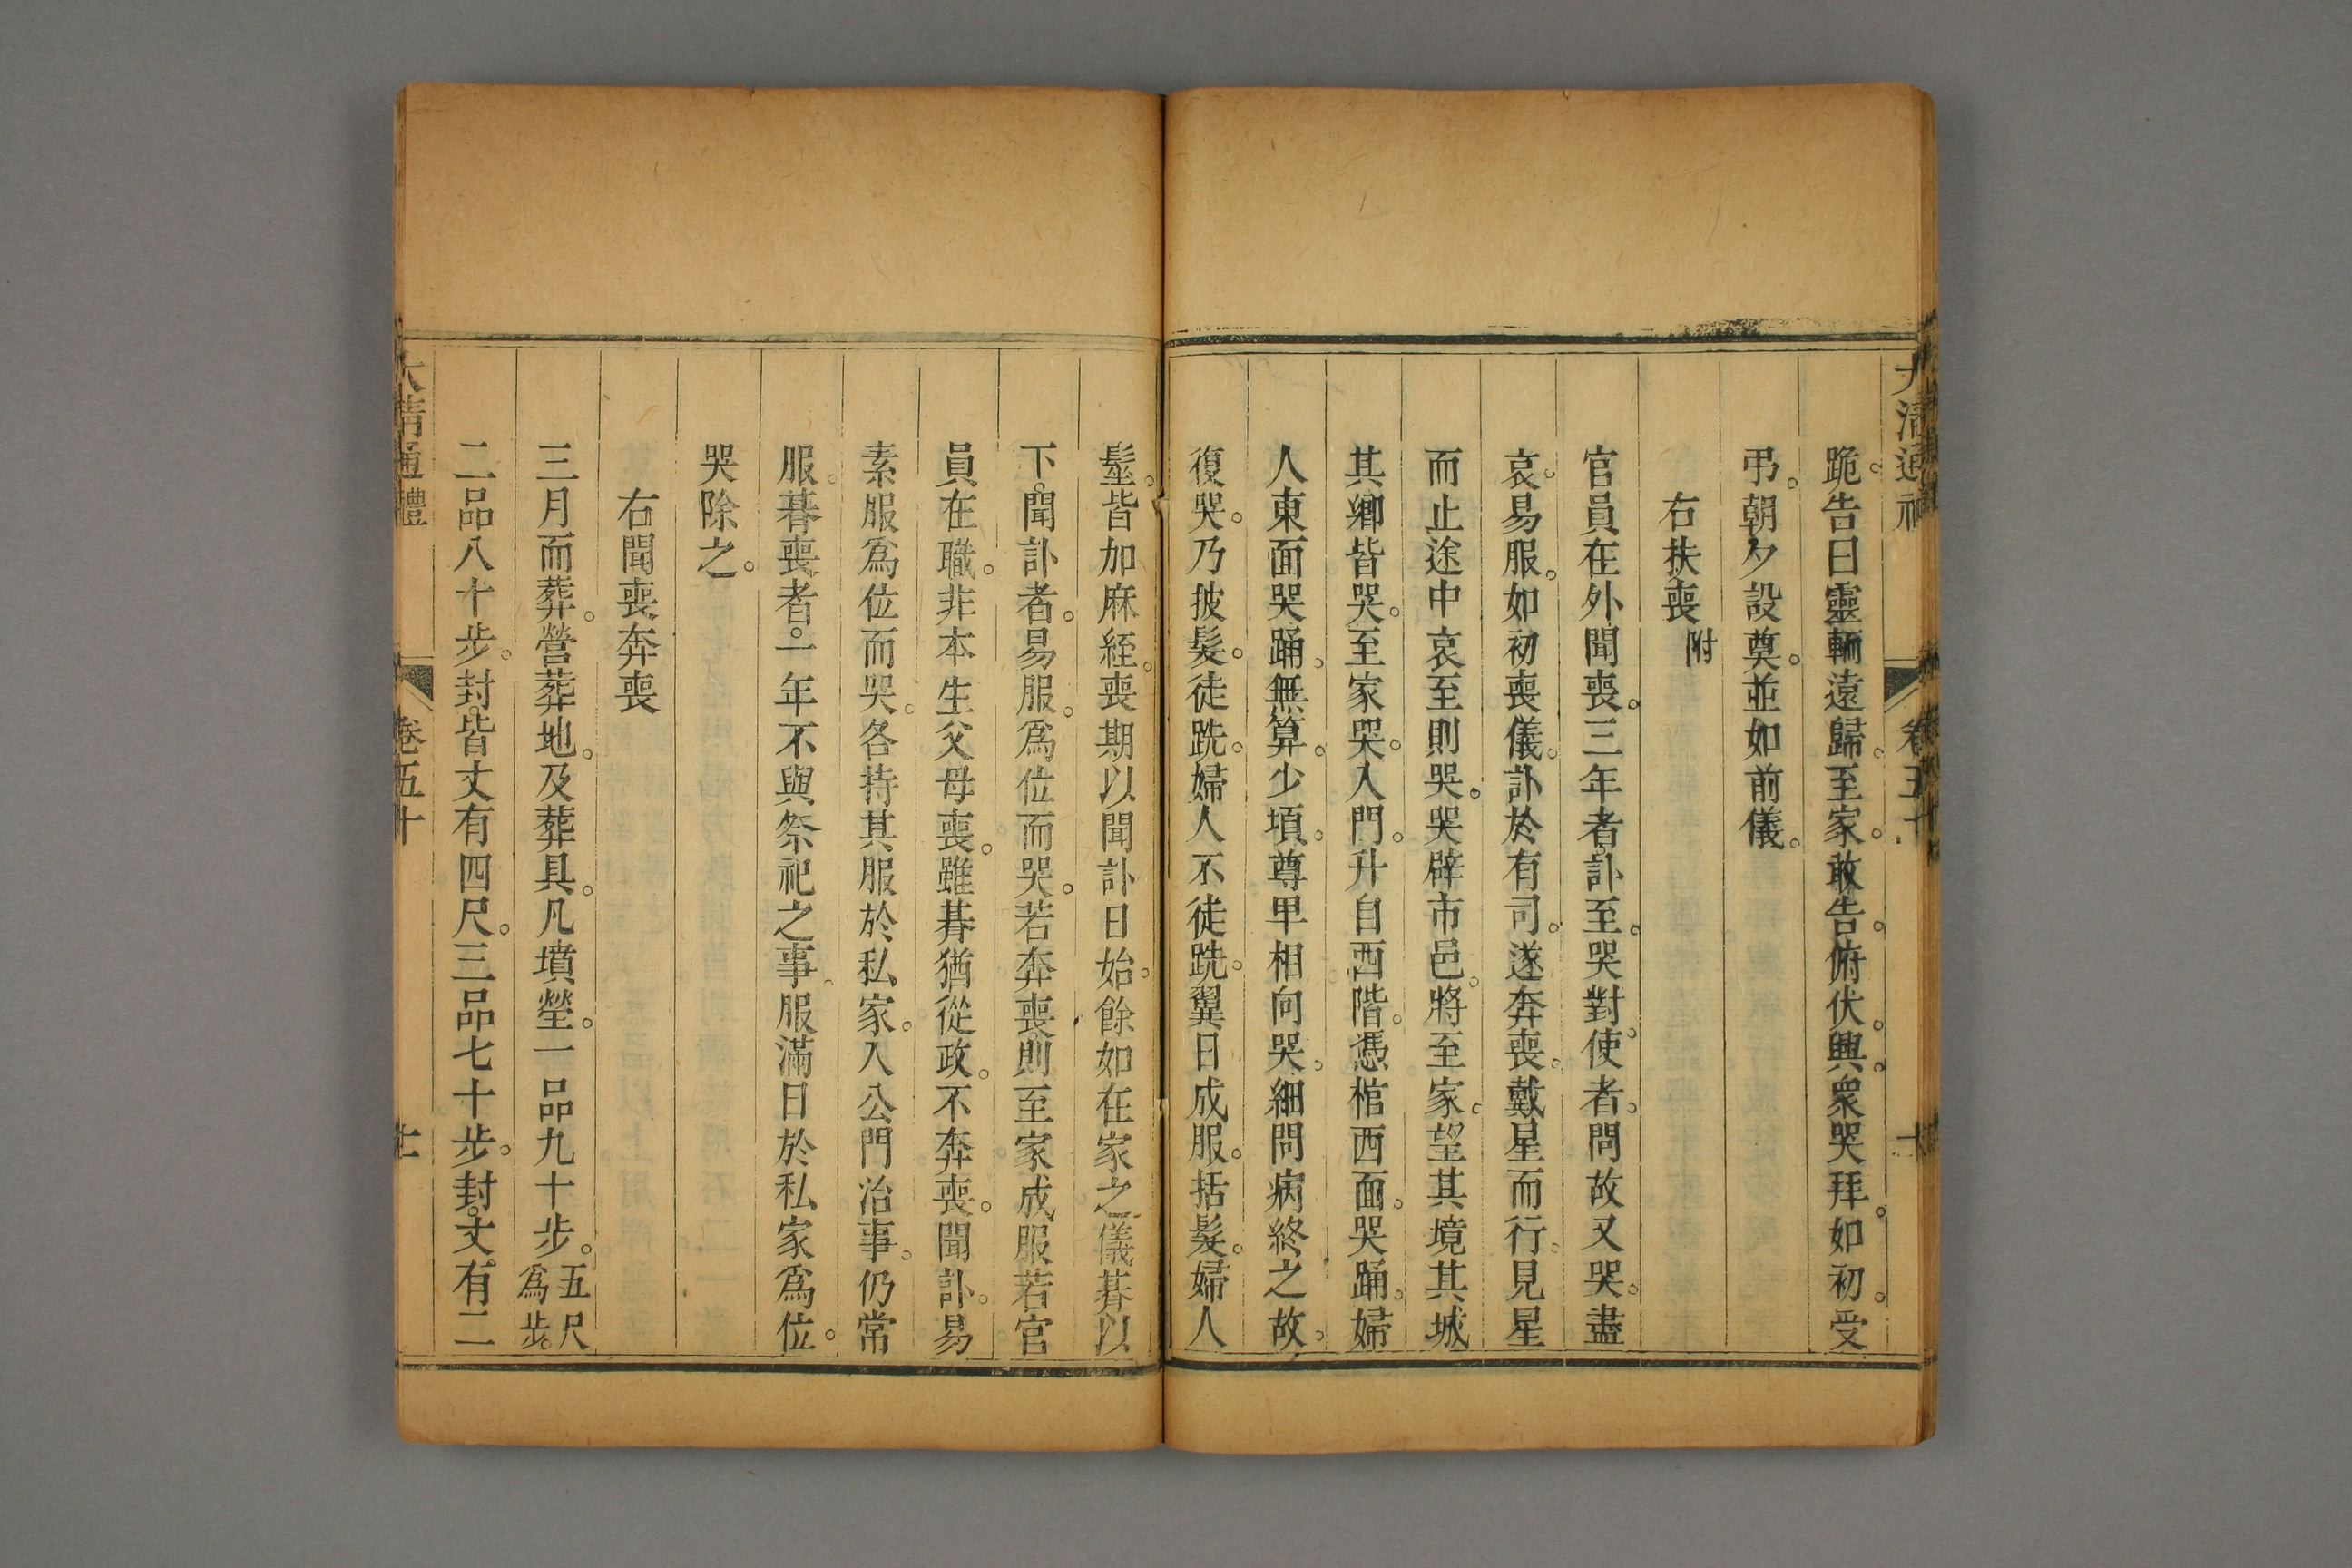 大清通禮 卷五十
跪。告曰靈輀遠歸。至家。敢告。俯伏。興。衆哭拜。如初。受
弔。朝夕設奠。並如前儀。
右扶喪附
官員在外聞喪。三年者。訃至。哭對使者。問故又哭。盡
哀。易服。如初喪儀。訃於有司。遂奔喪。戴星而行。見星
而止途中哀至則哭。哭辟市邑。將至家。望其境其城
其鄉皆哭。至家哭。入門。升自西階。憑棺西面。哭踊。婦
人東面哭踊。無算。少頃。尊卑相向哭。細問病終之故。
復哭。乃披髮。徒跣。婦人不徒跣。翼日成服。括髮。婦人
髽。皆加麻絰。喪期以聞訃日始。餘如在家之儀朞以
下。聞訃者。易服。爲位而哭。若奔喪則至家成服若官
員在職。非本生父母喪。雖朞猶從政。不奔喪。聞訃。易
素服爲位而哭。各持其服於私家。入公門治事。仍常
服。朞喪者。一年不與祭祀之事。服滿日於私家爲位。
哭除之。
右聞喪奔喪
三月而葬。營葬地。及葬具。凡墳塋。一品九十步。五尺爲步。
二品八十步。封皆丈有四尺。三品七十步。封。丈有二
大清通禮 卷五十